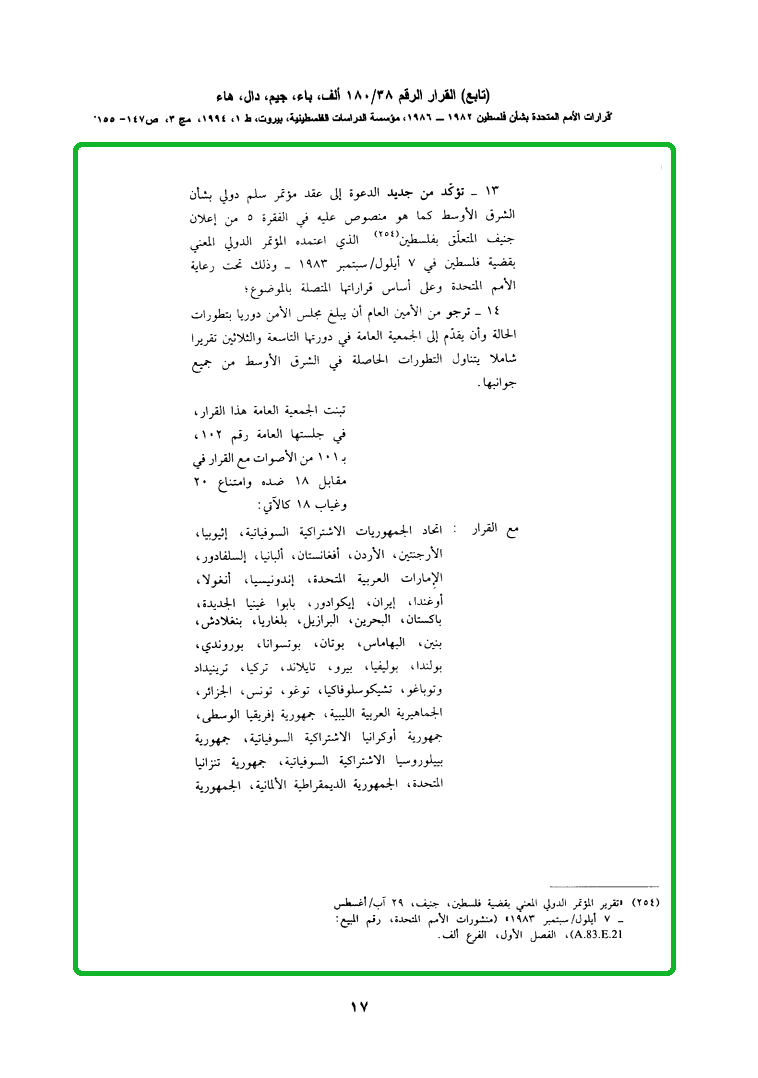 (تابع) القرار الرقم ١٨٠/٣٨ ألف، باء، جيم، دال، هاء
قرارات الأمم المتحدة بشأن فلسطين ١٩٨٢ ــ ١٩٨٦، مؤسسة الدراسات الفلسطينية، بيروت، ط ١، ١٩٩٤، مج ٣، ص١٤٧- ١٥٥
١٣ ـ تؤكّد من جديد الدعوة إلى عقد مؤتمر سلم دولي بشأن
الشرق الأوسط كما هو منصوص عليه في الفقرة ٥ من إعلان
جنيف المتعلّق بفلسطين(٢٥٤) الذي اعتمده المؤتمر الدولي المعني
بقضية فلسطين في ٧ أيلول/سبتمبر ١٩٨٣ ـ وذلك تحت رعاية
الأمم المتحدة وعلى أساس قراراتها المتصلة بالموضوع؛
١٤ ـ ترجو من الأمين العام أن يبلغ مجلس الأمن دوريا بتطورات
الحالة وأن يقدّم إلى الجمعية العامة في دورتها التاسعة والثلاثين تقريرا
شاملا يتناول التطورات الحاصلة في الشرق الأوسط من جميع
جوانبها.
تبنت الجمعية العامة هذا القرار،
في جلستها العامة رقم ١٠٢،
بـ ١٠١ من الأصوات مع القرار في
مقابل ١٨ ضده وامتناع ٢٠
وغياب ١٨ كالآتي:
مع القرار : اتحاد الجمهوريات الاشتراكية السوفياتية، إثيوبيا،
الأرجنتين، الأردن، أفغانستان، ألبانيا، إلسلفادور،
الإمارات العربية المتحدة، إندونيسيا، أنغولا،
أوغندا، إيران، إيكوادور، بابوا غينيا الجديدة،
باكستان، البحرين، البرازيل، بلغاريا، بنغلادش،
بنين، البهاماس، بوتان، بوتسوانا، بوروندي،
بولندا، بوليفيا، بيرو، تايلاند، تركيا، ترينيداد
وتوباغو، تشيكوسلوفاكيا، توغو، تونس، الجزائر،
الجماهيرية العربية الليبية، جمهورية إفريقيا الوسطى،
جمهورية أوكرانيا الاشتراكية السوفياتية، جمهورية
بييلوروسيا الاشتراكية السوفياتية، جمهورية تنزانيا
المتحدة، الجمهورية الديمقراطية الألمانية، الجمهورية
(٢٥٤) «تقرير المؤتمر الدولي المعني بقضية فلسطين، جنيف، ٢٩ آب/أغسطس
ــ ٧ أيلول/سبتمبر ١٩٨٣» (منشورات الأمم المتحدة، رقم المبيع:
A.83.E.21)، الفصل الأول، الفرع ألف.
١٧